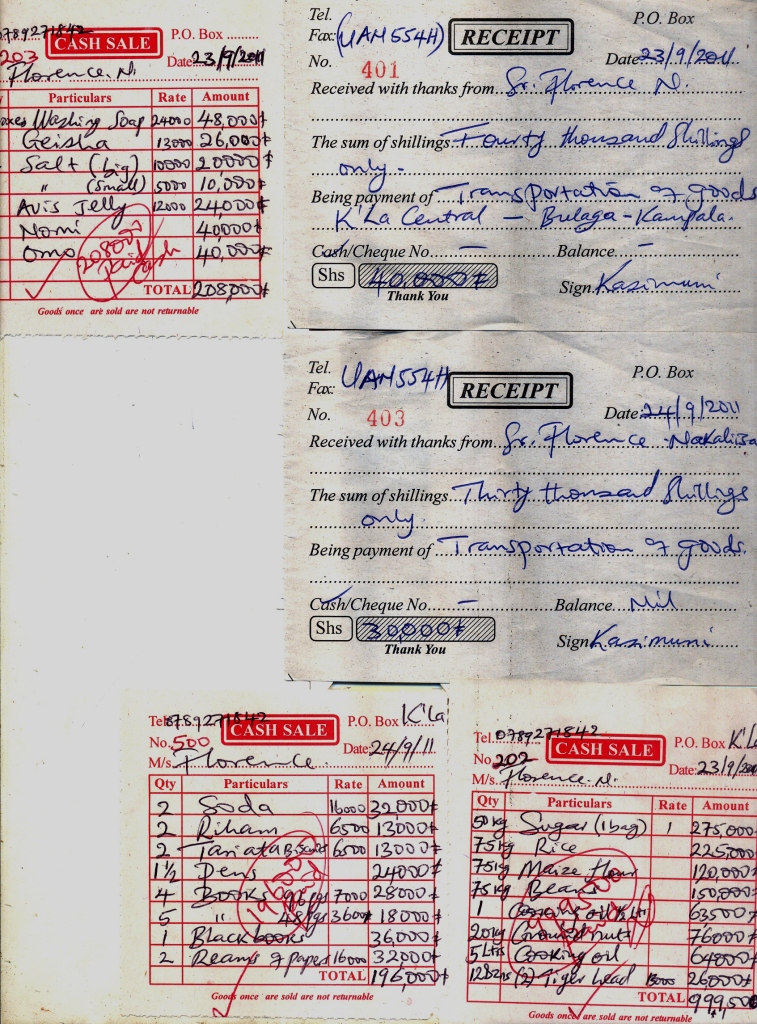 0789271842
CASH SALE P.O. Box
203 Date 23/9/2011
Florence. N.
Particulars Rate Amount
Washing Soap 24000 48,000/=
Geisha 13000 26,000/=
Salt (big) 10000 20000/=
" (small) 5000 10,000/=
Avis Jelly 12000 24,000/=
Nomi 40000/=
Omo 40,000/=
208000/= paid cash
TOTAL 208,000/=
Goods once are sold are not returnable
Tel. P.O. Box
Fax: (UAM 554H) RECEIPT
No. 401 Date 23/9/2011
Received with thanks from Sr. Florence N.
The sum of shillings Fourty thousand Shillings
only.-
Being payment of Transportation of goods
K'La Central - Bulaga - Kampala.
Cash/Cheque No. - Balance -
Shs 40,000/= Sign Kasimuni
Thank You
Tel. P.O. Box
Fax: UAM 554H RECEIPT
No. 403 Date 24/9/2011
Received with thanks from Sr. Florence Nakaliisa
The sum of shillings Thirty thousand Shillings
only.
Being payment of Transportation of goods.
Cash/Cheque No. - Balance Nil
Shs 30,000/= Sign Kasimuni
Thank You
Tel 0789271842 CASH SALE P.O. Box K'La
No. 500 Date 24/9/11
M/s Florence
Qty Particulars Rate Amount
2 Soda 16000 32,000/=
2 Riham 6500 13000/=
2 Biscuits 6500 13000/=
1½ Pens 24000/=
4 Books 96pgs 7000 28000/=
5 " 48pgs 3600 18000/=
1 Black books 36,000/=
2 Reams of paper 16000 32000/=
196000/= Paid
TOTAL 196,000/=
Goods once are sold are not returnable
Tel. 0789271842 CASH SALE P.O. Box K'La
No 202 Date 23/9/2011
M/s Florence. N.
Qty Particulars Rate Amount
50kg Sugar (1 bag) 1 275,000/=
75kg Rice 225,000/=
75kg Maize flour 120,000/=
75kg Beans 150,000/=
1 Cooking oil 63500/=
20kg Ground nuts 76000/=
5Ltrs Cooking oil 64000/=
12Dzns (2) Tiger head 13000 26000/=
TOTAL 999,500
Goods once are sold are not returnable